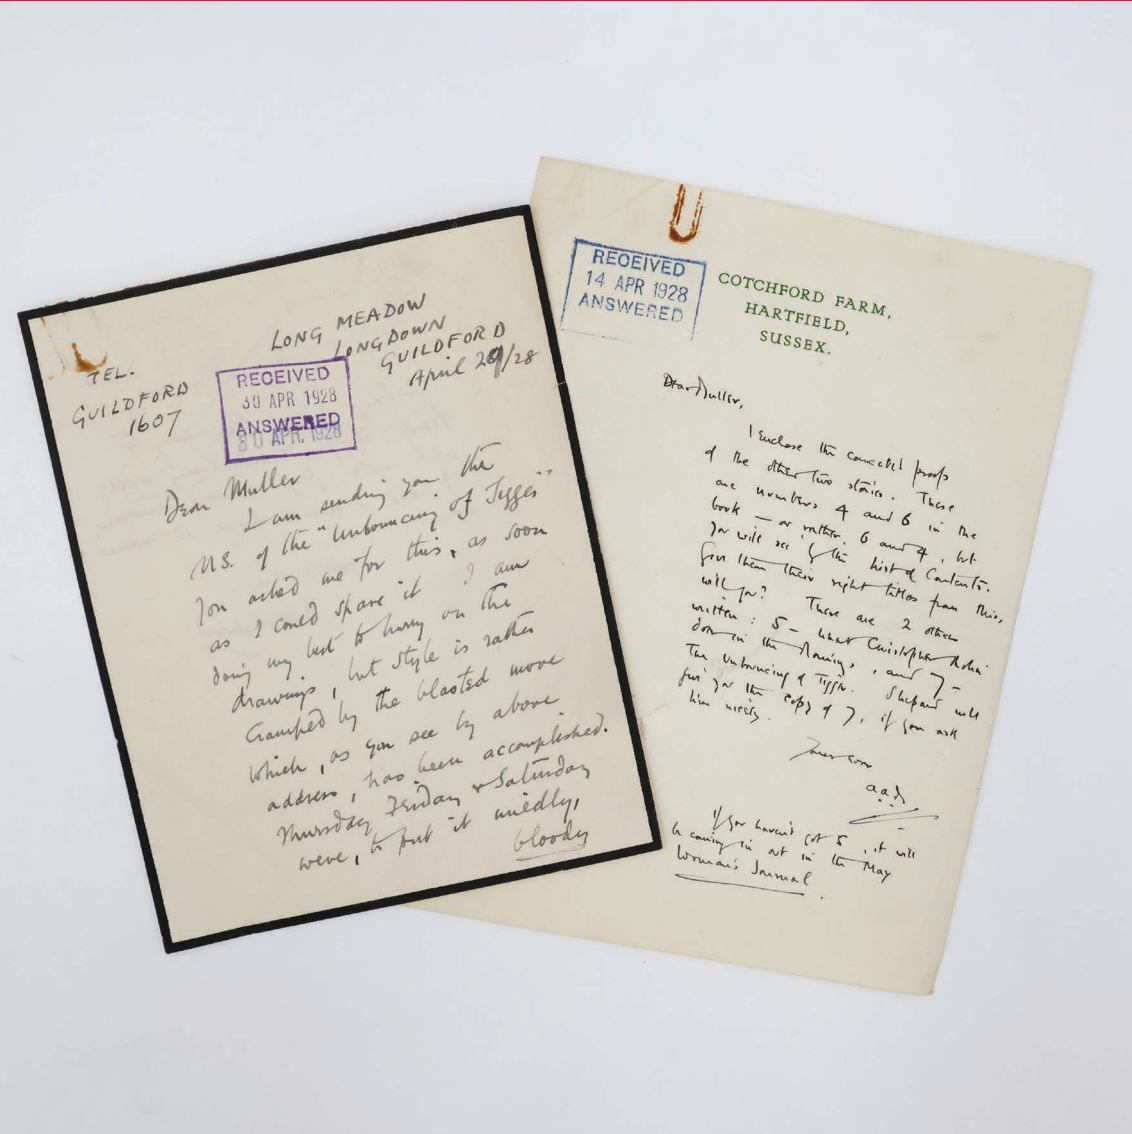 LONG MEADOW
LONGDOWN
GUILDFORD
April 29/28
TEL.
GUILDFORD
1607
RECEIVED
30 APR 1928
ANSWERED
30 APR. 1928
Dear Muller
I am sending you the
MS. of the "Unbouncing of Tigger"
you asked me for this, as soon
as I could spare it I am
doing my best to hurry on the
drawings, but style is rather
cramped by the blasted move
which, as you see by above
address, has been accomplished.
Thursday Friday & Saturday
were, to put it mildly,
bloody
RECEIVED
14 APR 1928
ANSWERED
COTCHFORD FARM,
HARTFIELD,
SUSSEX.
Dear Muller,
I enclose the corrected proofs
of the other two stories. These
are numbers 4 and 6 in the
book — or rather, 6 and 4, but
you will see by the list of Contents.
Give them their right titles from this,
will you? There are 2 others
written: 5 - What Christopher Robin
does in the Mornings, and 7 -
The Unbouncing of Tigger. Shepard will
give you the copy of 7, if you ask
him nicely.
Yours ever
a.a.m.
If you haven't got 5, it will
be coming in out in the May
Woman's Journal.